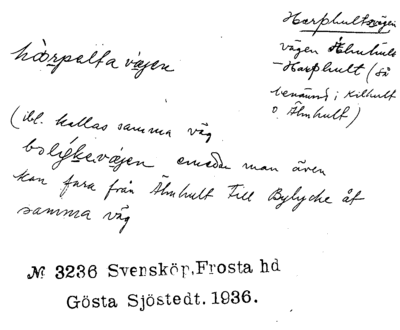 Harphultsvägen
vägen Älmhult
-Harphult (så
benämnd i Killhult
o Älmhult)
hàrpelta vägen
(ibl. kallas samma väg
bolykevägen emedan man även
kan fara från Älmhult till Bylycke åt
samma väg
№ 3236 Svensköp, Frosta hd
Gösta Sjöstedt. 1936.